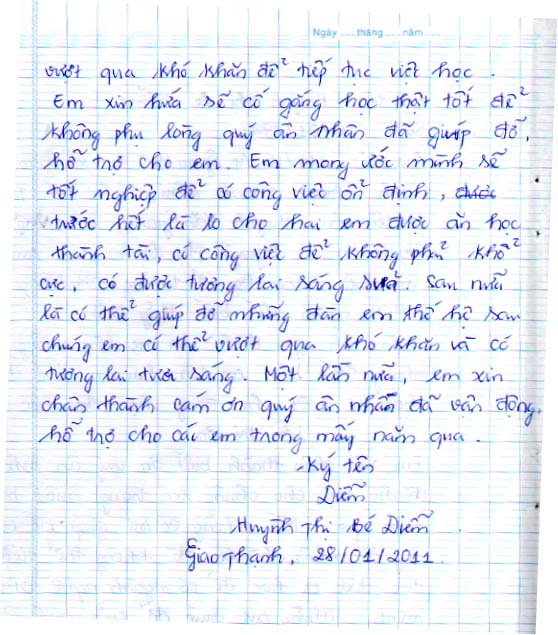 Ngày ......tháng ......năm......
vượt qua khó khăn để tiếp tục việc học.
Em xin hứa sẽ cố gắng học thật tốt để
không phụ lòng quý ân nhân đã giúp đỡ,
hỗ trợ cho em. Em mong ước mình sẽ
tốt nghiệp để có công việc ổn định, được
trước hết là lo cho hai em được ăn học
thành tài, có công việc để không phải khổ
cực, có được tương lai sáng sủa. Sau nữa
là có thể giúp đỡ những đàn em thế hệ sau
chúng em có thể vượt qua khó khăn và có
tương lai tươi sáng. Một lần nữa, em xin
chân thành cám ơn quý ân nhân đã vận động,
hỗ trợ cho các em trong mấy năm qua.
Ký tên
Diễm
Huỳnh Thị Bé Diễm
Giao Thạnh, 28/01/2011.